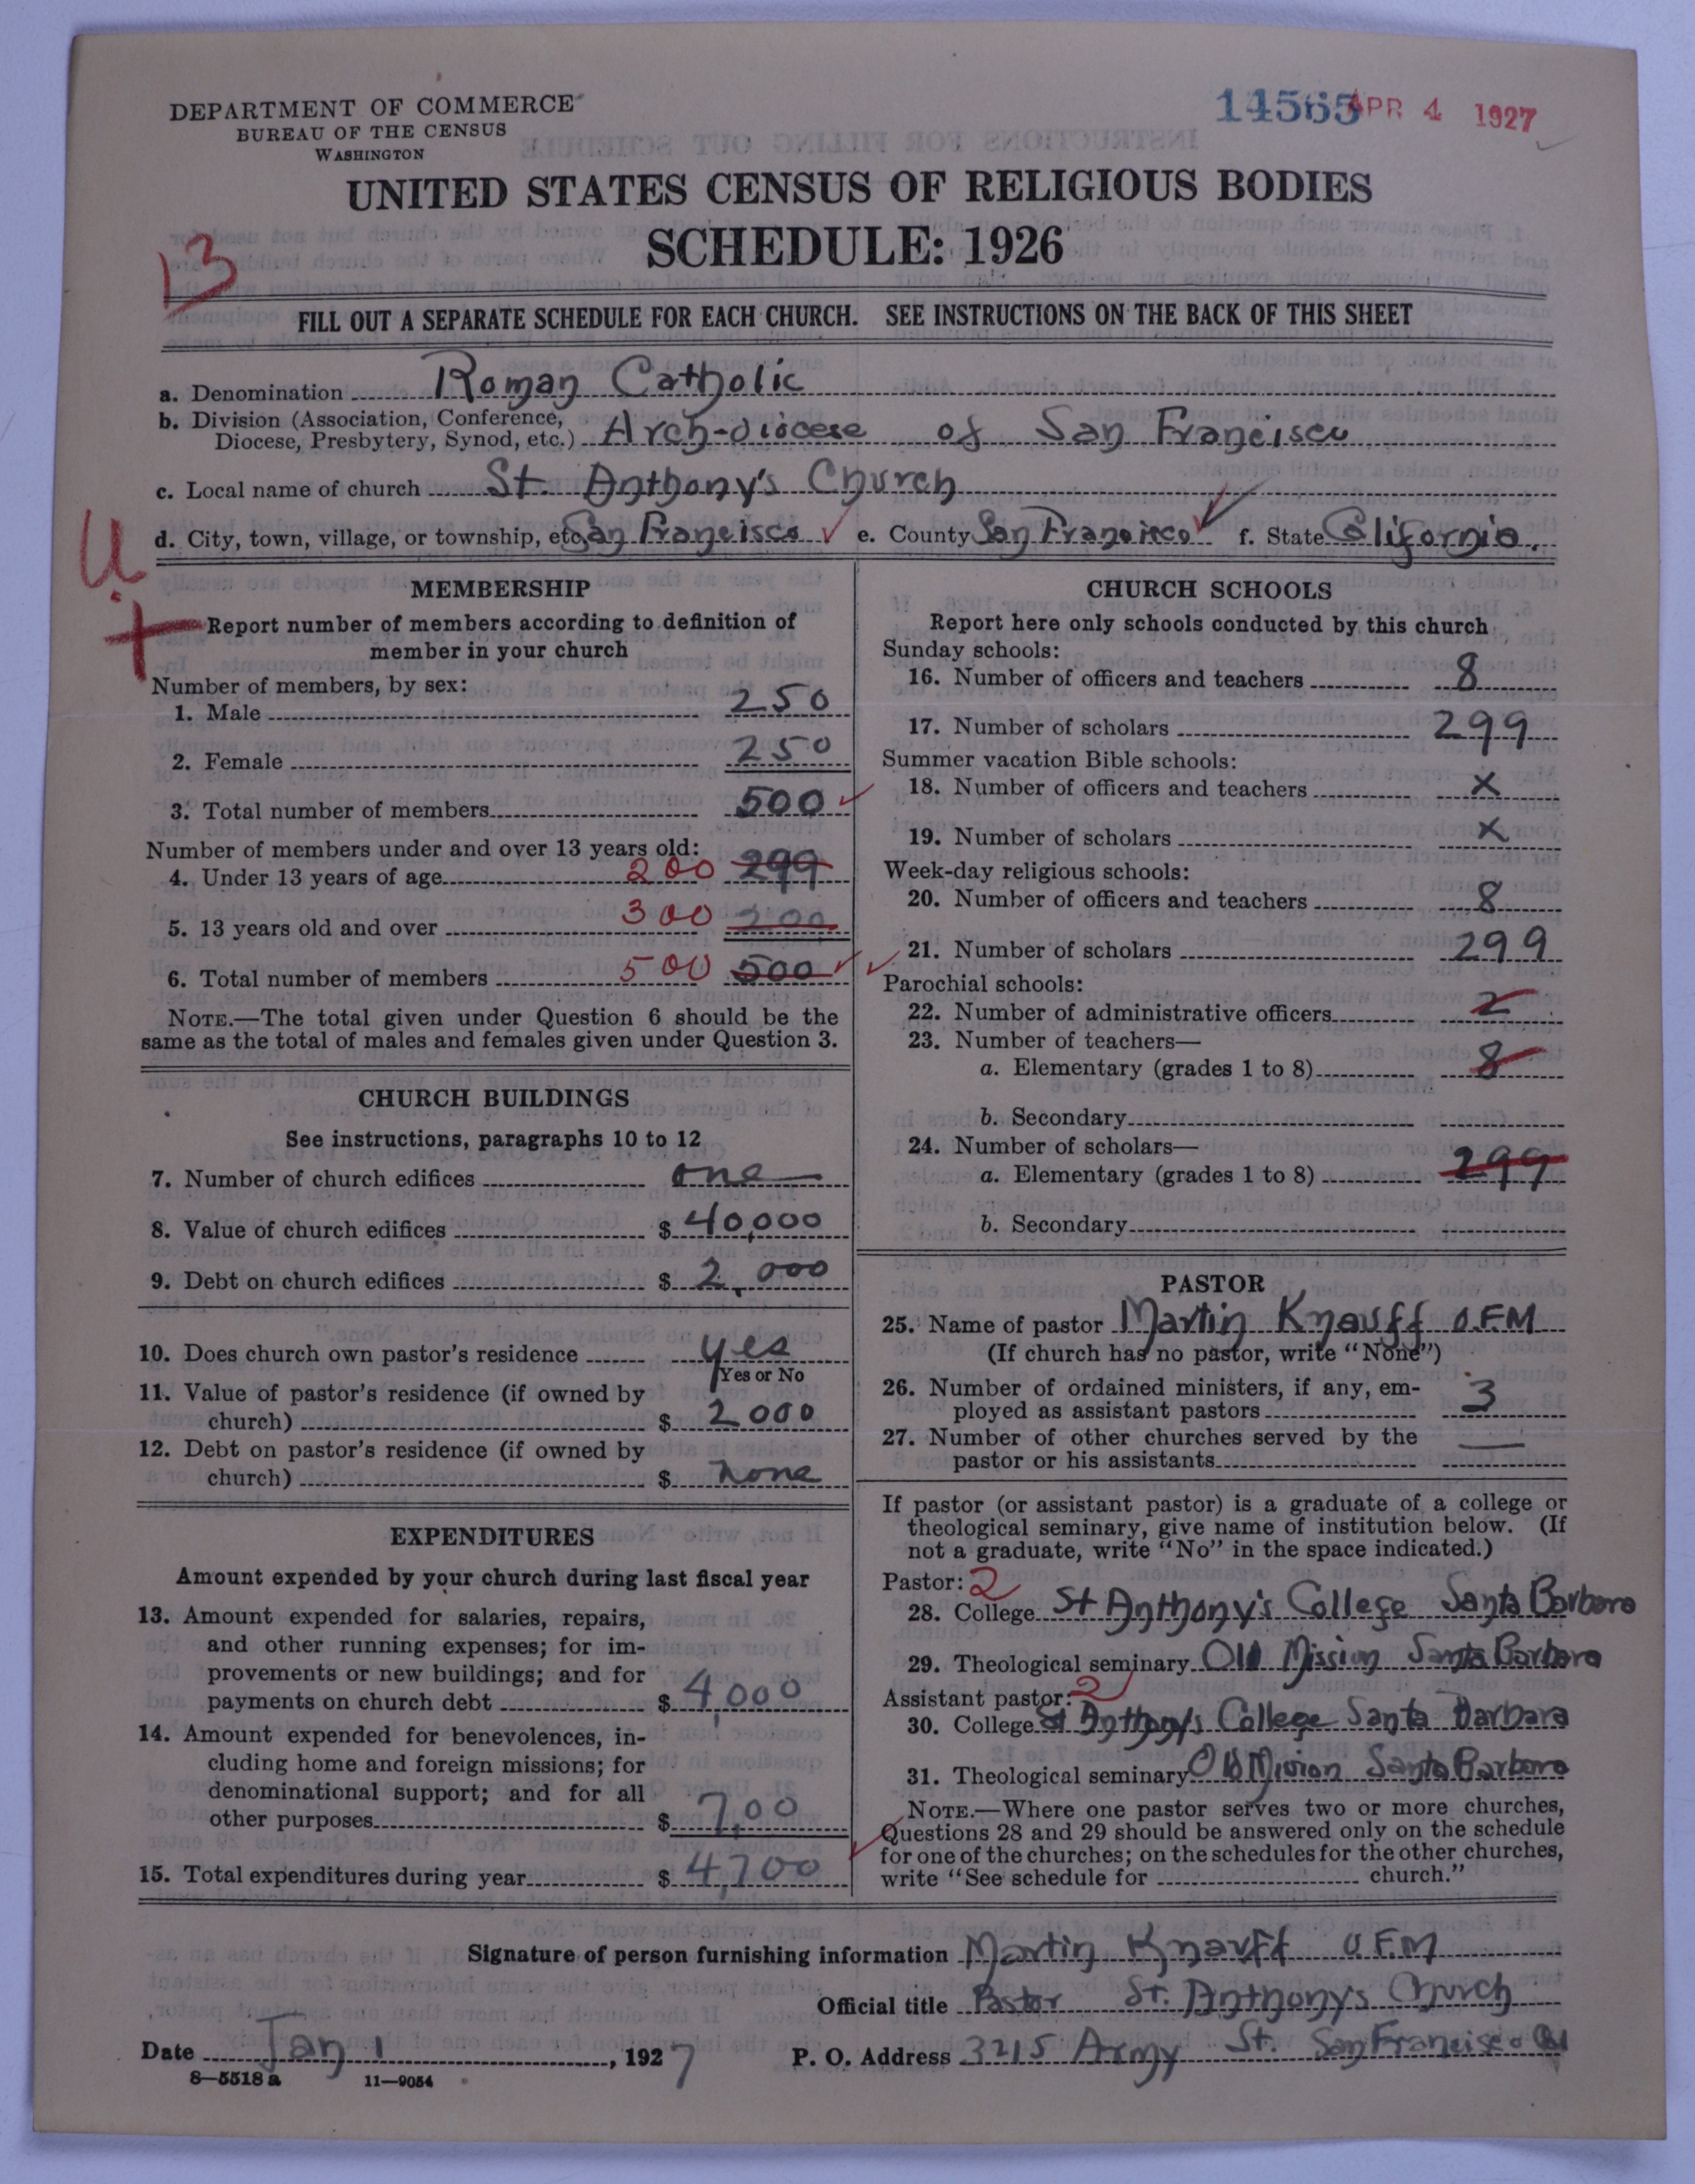 DEPARTMENT OF COMMERCE
BUREAU OF THE CENSUS
WASHINGTON
14565 APR 4 1927
UNITED STATES CENSUS OF RELIGIOUS BODIES
SCHEDULE: 1926
13
FILL OUT A SEPARATE SCHEDULE FOR EACH CHURCH. SEE INSTRUCTIONS ON THE BACK OF THIS SHEET
a. Denomination Roman Catholic
b. Division (Association, Conference,
Diocese, Presbytery, Synod, etc.) Arch-diocese of San Francisco
c. Local name of church St. Anthony's Church
U
d. City, town, village, or township, etc. San Francisco e. County San Francisco f. State California.
MEMBERSHIP
Report number of members according to definition of
member in your church
Number of members, by sex:
1. Male 250
2. Female 250
3. Total number of members 500
Number of members under and over 13 years old:
4. Under 13 years of age 200 299
5. 13 years old and over 300 200
6. Total number of members 500 500
NOTE.—The total given under Question 6 should be the
same as the total of males and females given under Question 3.
CHURCH BUILDINGS
See instructions, paragraphs 10 to 12
7. Number of church edifices one
8. Value of church edifices $ 40,000
9. Debt on church edifices $ 2,000
10. Does church own pastor's residence yes
Yes or No
11. Value of pastor's residence (if owned by
church) $ 2000
12. Debt on pastor's residence (if owned by
church) $ none
EXPENDITURES
Amount expended by your church during last fiscal year
13. Amount expended for salaries, repairs,
and other running expenses; for im-
provements or new buildings; and for
payments on church debt $ 4,000
14. Amount expended for benevolences, in-
cluding home and foreign missions; for
denominational support; and for all
other purposes $ 700
15. Total expenditures during year $ 4,700
CHURCH SCHOOLS
Report here only schools conducted by this church
Sunday schools:
16. Number of officers and teachers 8
17. Number of scholars 299
Summer vacation Bible schools:
18. Number of officers and teachers x
19. Number of scholars x
Week-day religious schools:
20. Number of officers and teachers 8
21. Number of scholars 299
Parochial schools:
22. Number of administrative officers 2
23. Number of teachers—
a. Elementary (grades 1 to 8) 8
b. Secondary
24. Number of scholars—
a. Elementary (grades 1 to 8) 299
b. Secondary
PASTOR
25. Name of pastor Martin Knauff O.F.M
(If church has no pastor, write "None")
26. Number of ordained ministers, if any, em-
ployed as assistant pastors 3
27. Number of other churches served by the
pastor or his assistants —
If pastor (or assistant pastor) is a graduate of a college or
theological seminary, give name of institution below. (If
not a graduate, write "No" in the space indicated.)
Pastor: 2
28. College St Anthony's College Santa Barbara
29. Theological seminary Old Mission Santa Barbara
Assistant pastor: 2
30. College St Anthony's College Santa Barbara
31. Theological seminary Old Mission Santa Barbara
NOTE.—Where one pastor serves two or more churches,
Questions 28 and 29 should be answered only on the schedule
for one of the churches; on the schedules for the other churches,
write "See schedule for church."
Signature of person furnishing information Martin Knauff O.F.M
Official title Pastor St. Anthony's Church
Date Jan 1, 1927 P. O. Address 3215 Army St. San Francisco Cal
8—5518 a 11—9054